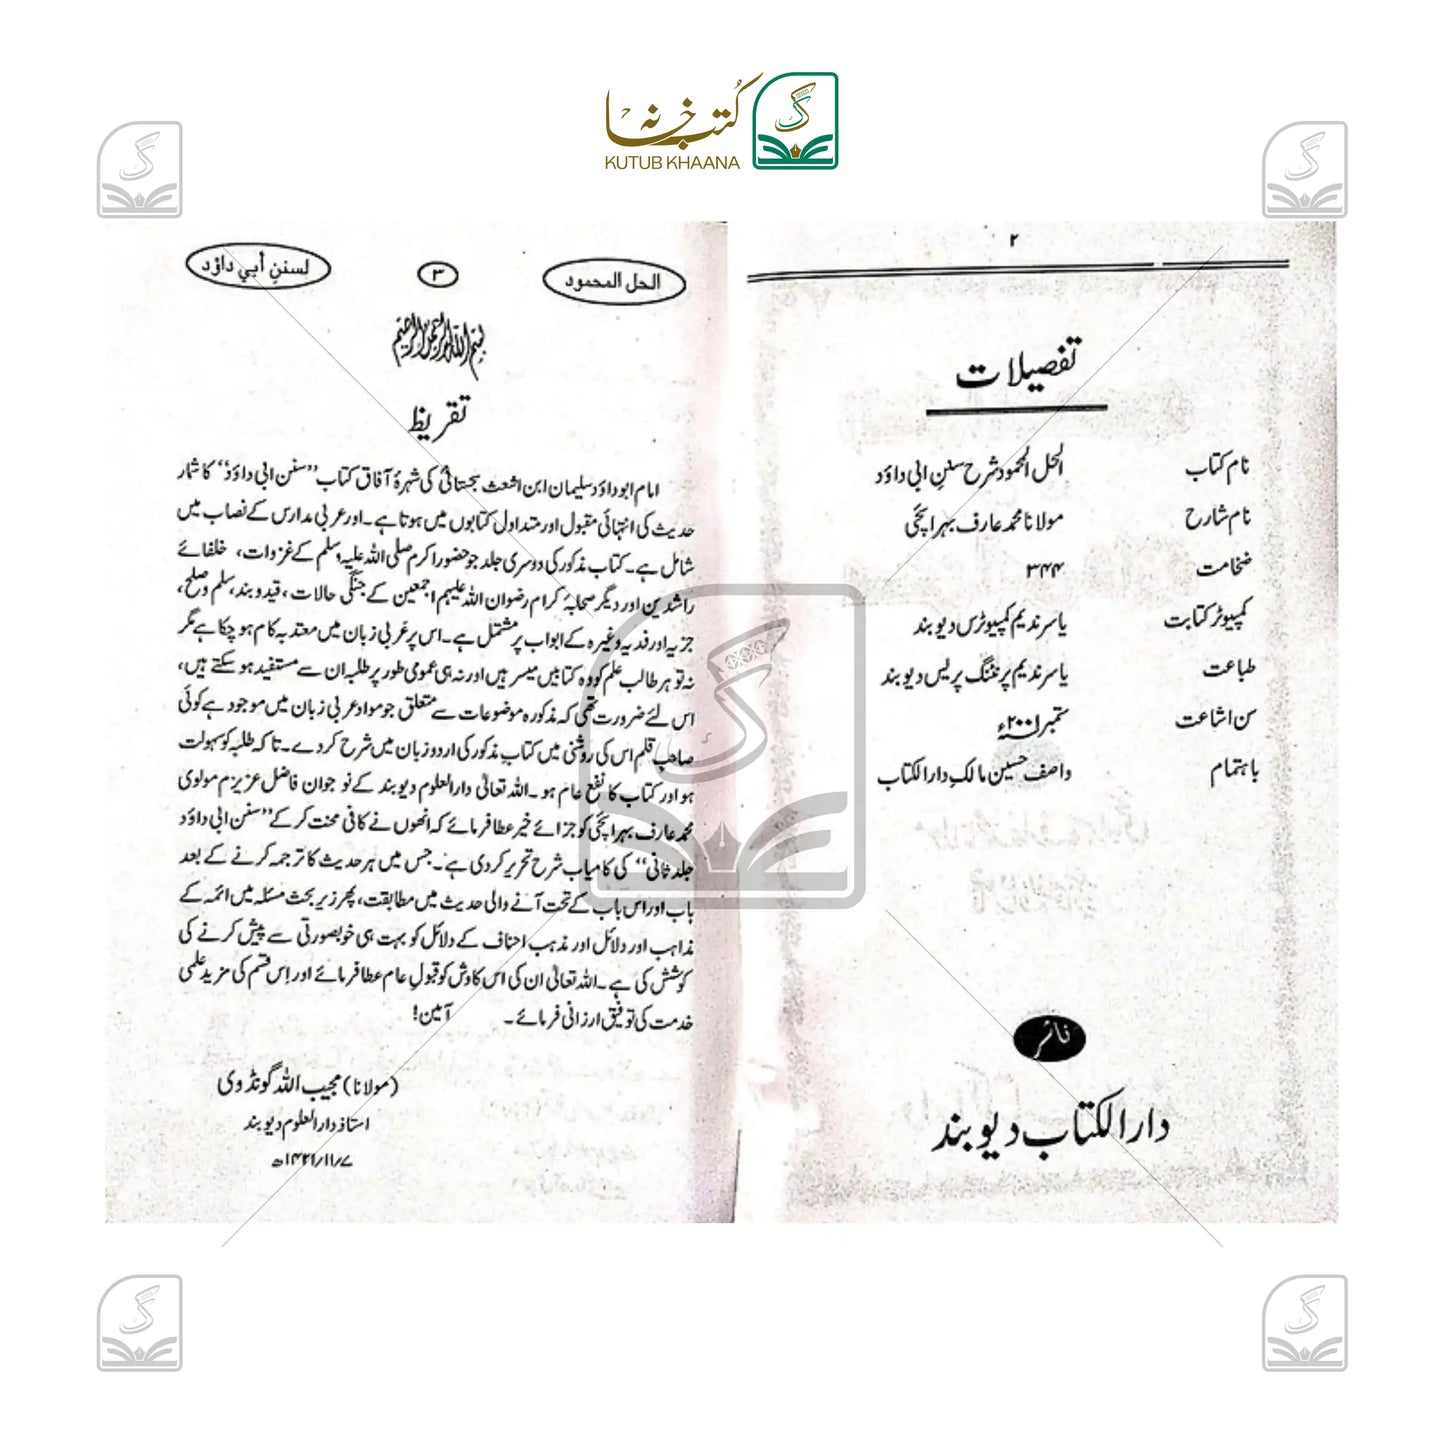 کتب خانہ
KUTUB KHAANA
۲
تفصیلات
نام کتاب الحل المحمود شرح سنن ابی داؤد
نام شارح مولانا محمد عارف بہرائچی
ضخامت ۳۴۴
کمپیوٹر کتابت یاسر ندیم کمپیوٹرس دیوبند
طباعت یاسر ندیم پرنٹنگ پریس دیوبند
سن اشاعت ستمبر ۲۰۰۱ء
باہتمام واصف حسین مالک دارالکتاب
ناشر
دارالکتاب دیوبند
الحل المحمود ۳ لسنن أبي داؤد
بسم اللہ الرحمن الرحیم
تقریظ
امام ابوداؤد سلیمان ابن اشعث سجستانیؒ کی شہرۂ آفاق کتاب ’’سنن ابی داؤد‘‘ کا شمار
حدیث کی انتہائی مقبول اور متداول کتابوں میں ہوتا ہے۔ اور عربی مدارس کے نصاب میں
شامل ہے۔ کتاب مذکور کی دوسری جلد جو حضور اکرم صلی اللہ علیہ وسلم کے غزوات، خلفائے
راشدین اور دیگر صحابۂ کرام رضوان اللہ علیہم اجمعین کے جنگی حالات، قید و بند، سلم وصلح،
جزیہ اور فدیہ وغیرہ کے ابواب پر مشتمل ہے۔ اس پر عربی زبان میں معتد بہ کام ہو چکا ہے مگر
نہ تو ہر طالب علم کو وہ کتابیں میسر ہیں اور نہ ہی عمومی طور پر طلبہ ان سے مستفید ہو سکتے ہیں،
اس لئے ضرورت تھی کہ مذکورہ موضوعات سے متعلق جو مواد عربی زبان میں موجود ہے کوئی
صاحب قلم اس کی روشنی میں کتاب مذکور کی اردو زبان میں شرح کردے۔ تاکہ طلبہ کو سہولت
ہو اور کتاب کا نفع عام ہو۔ اللہ تعالیٰ دارالعلوم دیوبند کے نوجوان فاضل عزیزم مولوی
محمد عارف بہرائچی کو جزائے خیر عطا فرمائے کہ انھوں نے کافی محنت کرکے ’’سنن ابی داؤد
جلد ثانی‘‘ کی کامیاب شرح تحریر کردی ہے۔ جس میں ہر حدیث کا ترجمہ کرنے کے بعد
باب اور اس باب کے تحت آنے والی حدیث میں مطابقت، پھر زیر بحث مسئلہ میں ائمہ کے
مذاہب اور دلائل اور مذہب احناف کے دلائل کو بہت ہی خوبصورتی سے پیش کرنے کی
کوشش کی ہے۔ اللہ تعالیٰ ان کی اس کاوش کو قبولِ عام عطا فرمائے اور اِس قسم کی مزید علمی
خدمت کی توفیق ارزانی فرمائے۔ آمین!
(مولانا) مجیب اللہ گونڈوی
استاذ دارالعلوم دیوبند
۷/۱۱/۱۴۲۱ھ